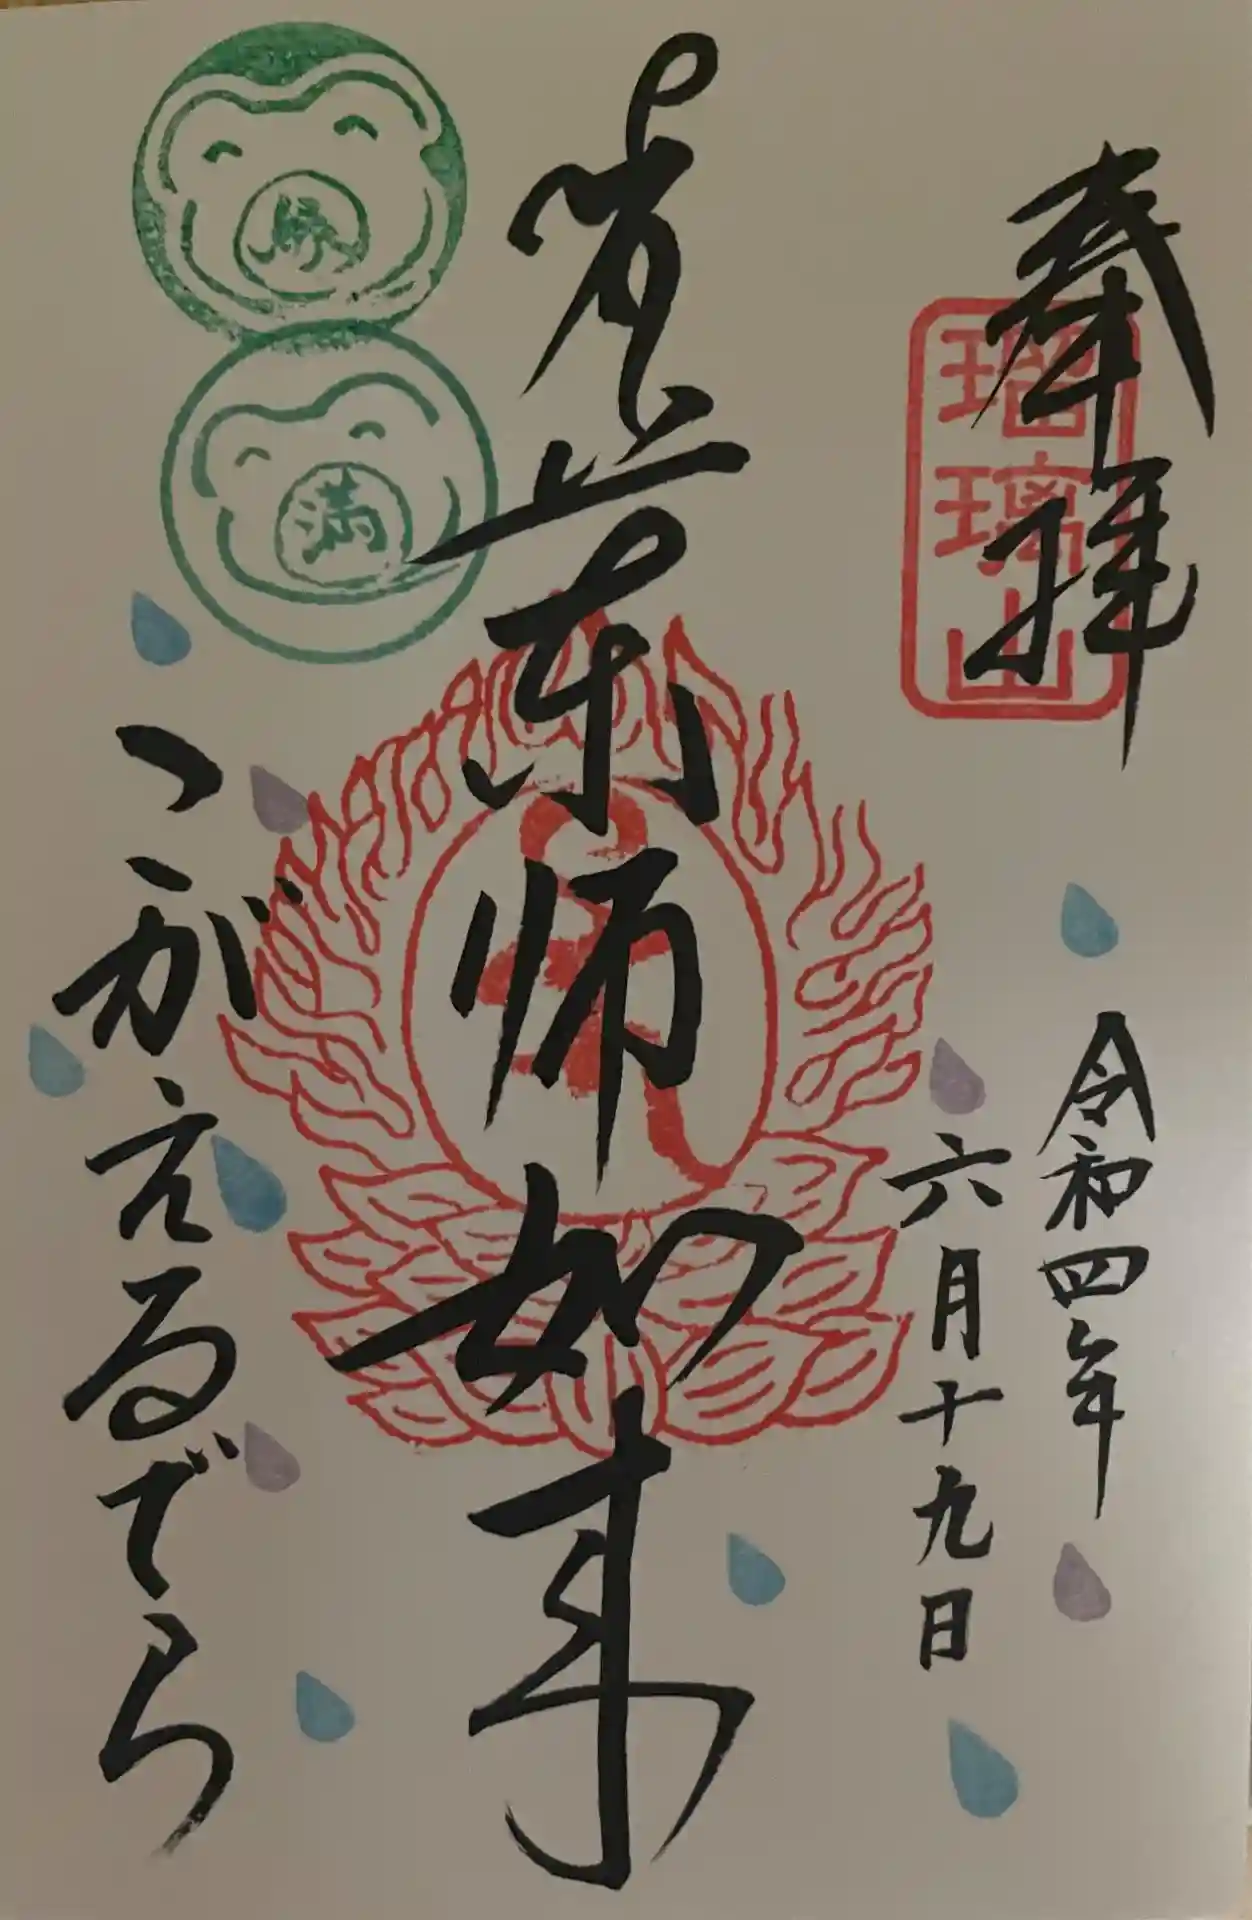 奉拝
瑠璃山
令和四年
六月十九日
薬師如来
縁
満
こがえるでら